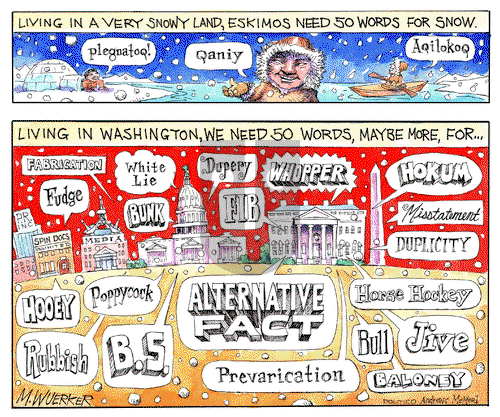 LIVING IN A VERY SNOWY LAND, ESKIMOS NEED 50 WORDS FOR SNOW.
plegnatoq!
Qaniy
Aqilokoq
LIVING IN WASHINGTON, WE NEED 50 WORDS, MAYBE MORE, FOR...
FABRICATION
White
Lie
Dupery
WHOPPER
HOKUM
Fudge
BUNK
FIB
Misstatement
DUPLICITY
SPIN DOCS
MEDIA
HOOEY
Poppycock
ALTERNATIVE
FACT
Horse Hockey
Rubbish
B.S.
Bull
Jive
Prevarication
BALONEY
M.WUERKER
POLITICO